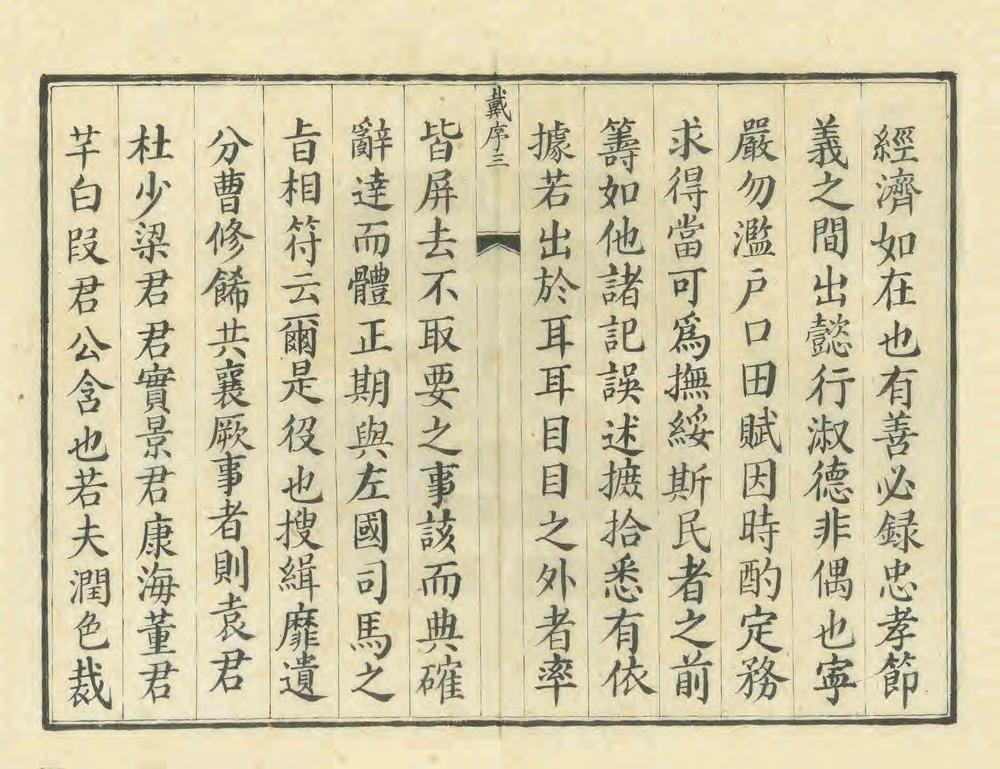 經濟如在也有善必録忠孝節
義之間出懿行淑德非偶也寕
嚴勿濫戸口田賦因時酌定務
求得當可爲撫綏斯民者之前
籌如他諸記誤述摭拾悉有依
據若出於耳耳目目之外者率
戴序三
皆屏去不取要之事該而典確
辭達而體正期與左國司馬之
旨相符云爾是役也搜緝靡遺
分曹修餙共襄厥事者則袁君
杜少梁君君實景君康海董君
芊白叚君公含也若夫潤色裁